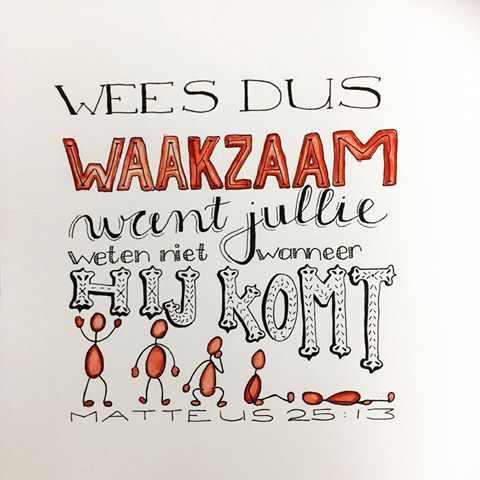 WEES DUS
WAAKZAAM
want jullie
weten niet wanneer
HIJ KOMT
MATTEUS 25:13